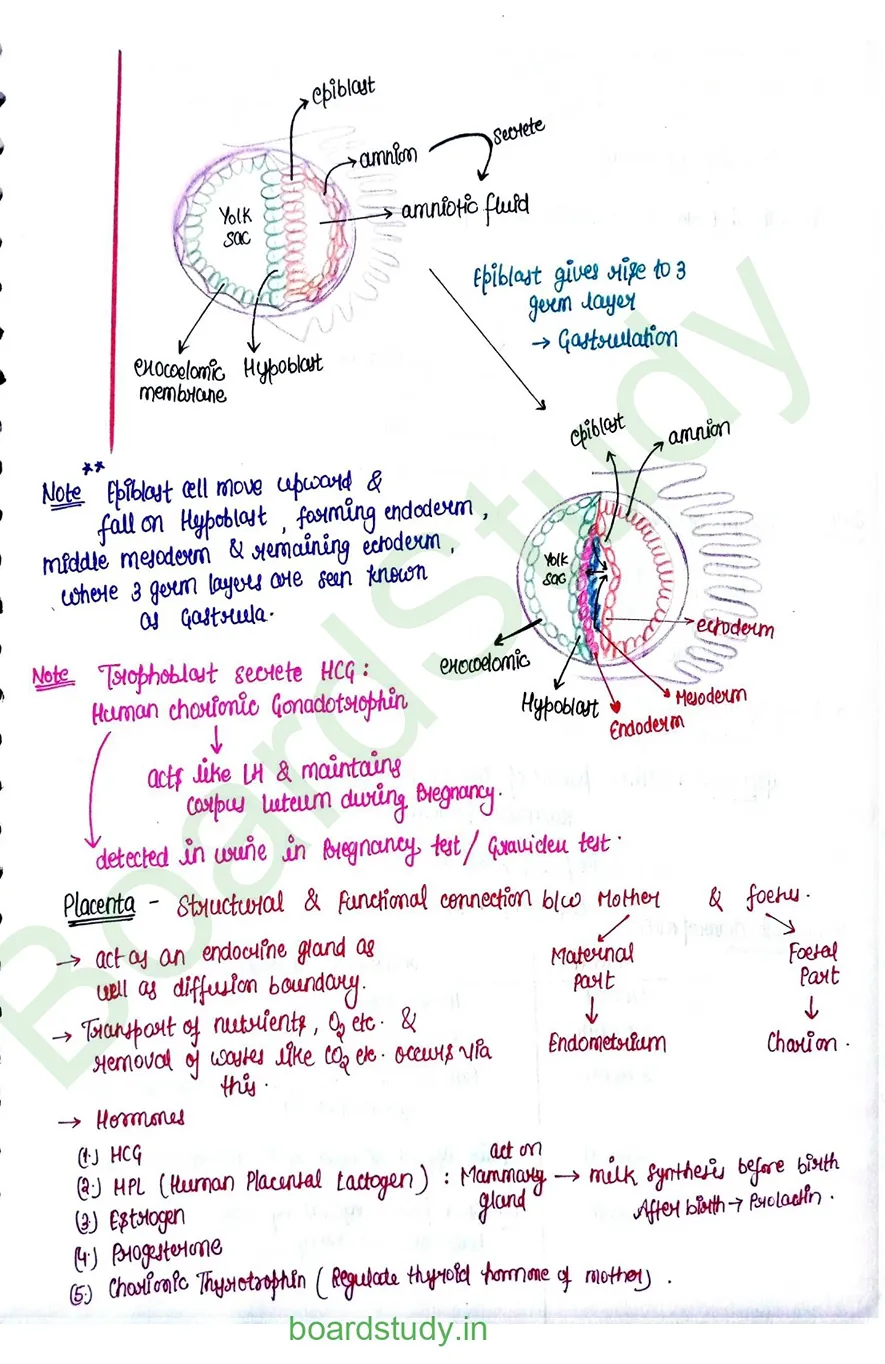 epiblast
secrete
amnion
amniotic fluid
Yolk
sac
exocoelomic
membrane
Hypoblast
Epiblast gives rise to 3
germ layer
→ Gastrulation
epiblast
amnion
Yolk
sac
ectoderm
exocoelomic
Mesoderm
Hypoblast
Endoderm
**
Note Epiblast cell move upward &
fall on Hypoblast, forming endoderm,
middle mesoderm & remaining ectoderm,
where 3 germ layers are seen known
as Gastrula.
Note Trophoblast secrete HCG:
Human chorionic Gonadotrophin
↓
acts like LH & maintains
corpus luteum during Pregnancy.
detected in urine in Pregnancy test/ Gravidex test.
Placenta - Structural & Functional connection b/w Mother & foetus.
→ act as an endocrine gland as
well as diffusion boundary.
Maternal
Part
↓
Endometrium
Foetal
Part
↓
Chorion.
→ Transport of nutrients, O2 etc. &
removal of wastes like CO2 etc. occurs via
this.
→ Hormones
(1.) HCG
(2.) HPL (Human Placental Lactogen) : act on Mammary gland → milk synthesis before birth
After birth → Prolactin.
(3.) Estrogen
(4.) Progesterone
(5.) Chorionic Thyrotrophin (Regulate thyroid hormone of mother).
BoardStudy
boardstudy.in